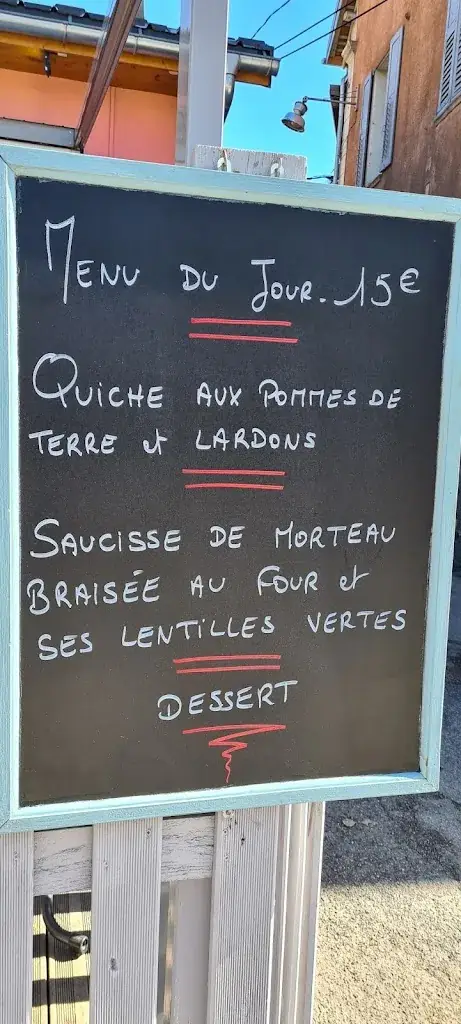 Menu du Jour. 15€
Quiche aux pommes de
terre et lardons
Saucisse de Morteau
braisée au four et
ses lentilles vertes
Dessert